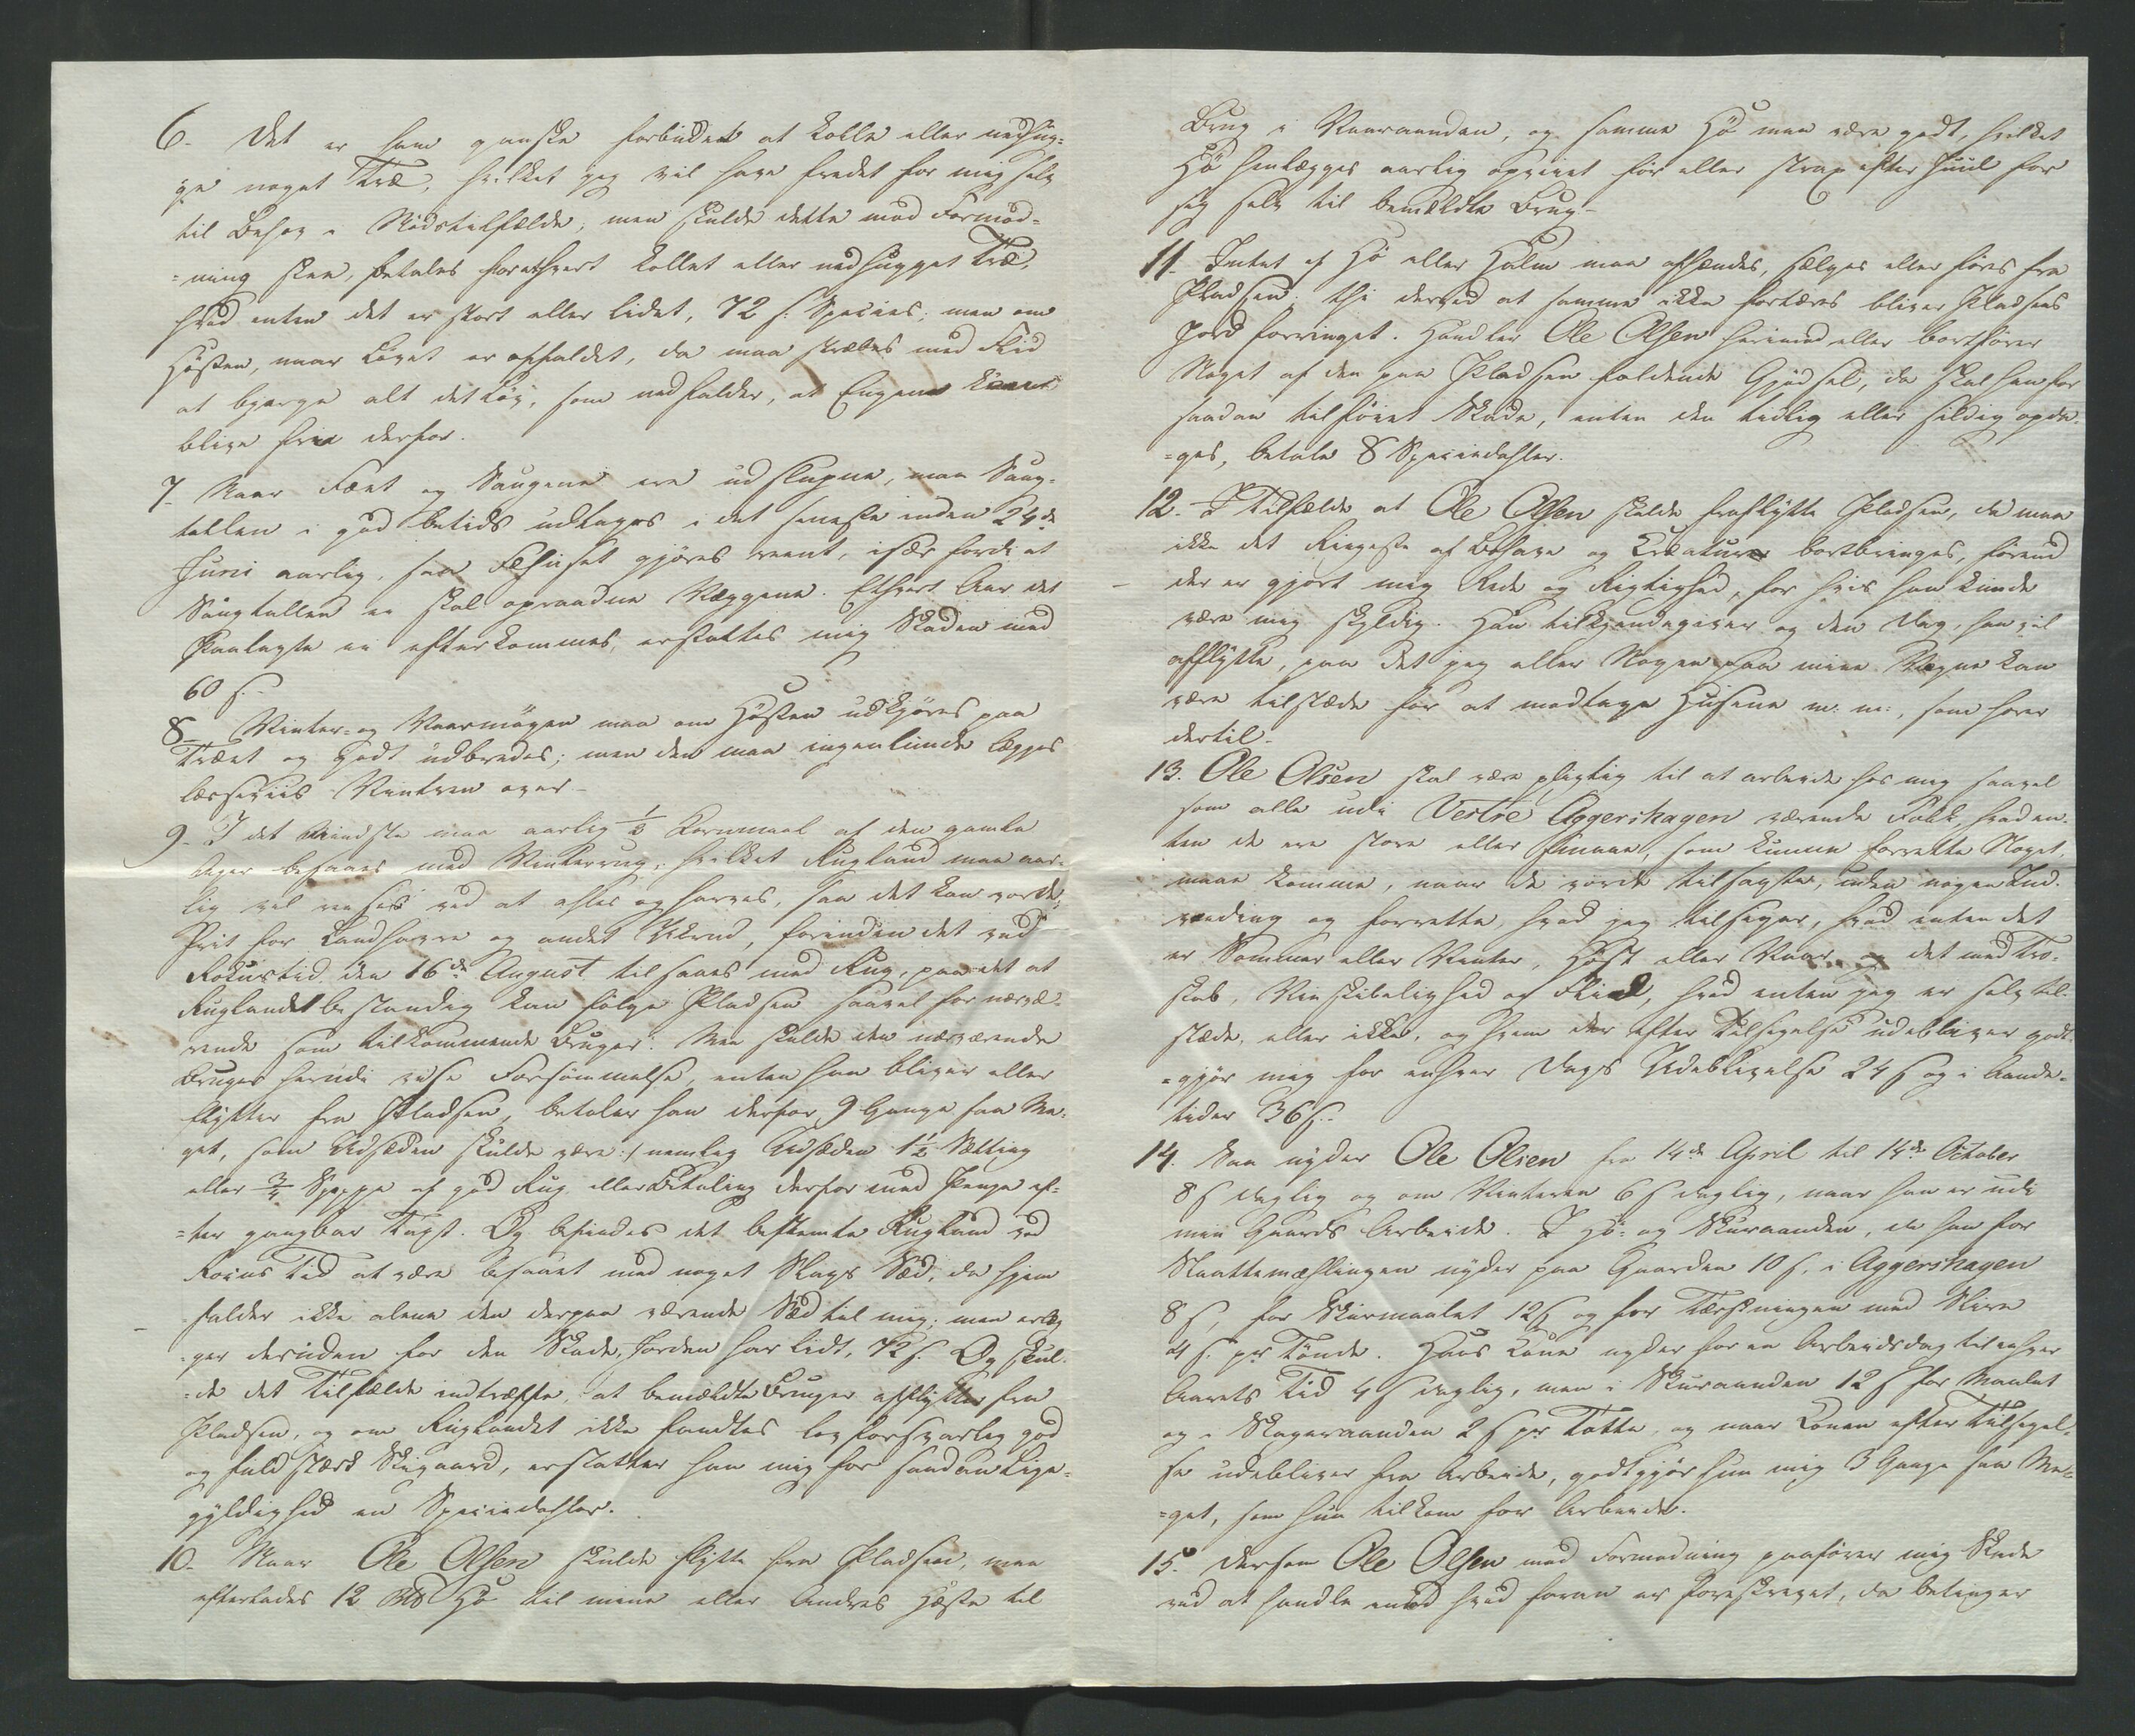 6. Det er ham ganske forbudet at kolle eller nedhug-
ge noget Træ, hvilket jeg vil have fredet for mig selv
til Behov i Nødstilfælde; men skulde dette mod Formod-
=ning skee, betales for ethvert kollet eller nedhugget Træ,
hvad enten det er stort eller lidet, 72 s. Species; men om
Høsten, naar Løvet er affaldet, da maa stræbes med Flid
at bjerge alt det Løv, som nedfalder, at Engene kunne
blive frie derfor.
7. Naar Fæet og Saugene ere udslupne, maa Saug-
tallen i god betids udtages i det seneste inden 24de
Juni aarlig, saa Fæhuset gjøres reent, især fordi at
Saugtallen ei skal opraadne Væggene. Ethvert Aar det
Paalagte ei efterkommes, erstattes mig Skaden med
60 s.-
8. Vinter- og Vaarmøgen maa om Høsten udkjøres paa
Træet og godt udbredes; men den maa ingenlunde lægges
læsseviis Vintren over-
9. I det Mindste maa aarlig 1/2 Kornmaal af den gamle
Ager besaaes med Vinterrug, hvilket Rugland maa aar-
lig vel renses ved at ahles og harves, saa det kan vorde
frit for Landhavre og andet Ukrud, forinden det ved
Rokustid den 16de August tilsaaes med Rug, paa det at
Ruglandet bestandig kan følge Pladsen saavel for nærvæ-
rende som tilkommende Bruger. Men skulde den nærværende
Bruger herudi vise Forsømmelse, enten han bliver eller
flytter fra Pladsen, betaler han derfor 9 Gange saa Me-
get, som Udsæden skulde være :/ nemlig Udsæden 1 1/2 Sætting
eller 3/4 Skjeppe af god Rug eller Betaling derfor med Penge ef-
=ter gangbar Taxt. Og befindes det bestemte Rugland ved
Rocus Tid at være besaaet med noget Slags Sæd, da hjem
falder ikke alene den derpaa værende Sæd til mig; men erlæg
ger desuden for den Skade, Jorden har lidt, 72 s. Og skul-
=de det Tilfælde indtræffe, at bemældte Bruger afflytter fra
Pladsen, og om Ruglandet ikke fandtes lovforsvarlig god
og fuldstærk Skigaard, erstatter han mig for saadan Lige-
gyldighed en Speciedahler.
10. Naar Ole Olsen skulde flytte fra Pladsen, maa
efterlades 12 Hø til mine eller Andres Hæste til
Brug i Vaaraanden, og samme Hø maa være godt, hvilket
Hø henlægges aarlig opveiet før eller strax efter Juul for
sig selv til bemældte Brug-
11. Intet af Hø eller Halm maa afhændes, sælges eller føres fra
Pladsen; thi derved at samme ikke fortæres bliver Pladsens
Jord forringet. Handler Ole Olsen herimod eller bortfører
Noget af den paa Pladsen faldende Gjødsel, da skal han for
saadan tilføiet Skade, enten den tidlig eller sildig opda-
=ges, betale 8 Speciedahler.
12. I Tilfælde at Ole Olsen skulde fraflytte Pladsen, da maa
ikke det Ringeste af Bohave og Creature bortbringes, førend
der er gjort mig Rede og Rigtighed, for hvis han kunde
være mig skyldig. Han tilkjendegiver og den Dag, han vil
afflytte, paa det jeg eller Nogen paa mine Vegne kan
være tilstæde for at modtage Husene m: m:, som hører
dertil-
13. Ole Olsen skal være pligtig til at arbeide hos mig saavel
som alle udi Vestre Aggershagen værende Folk, hvad en-
ten de ere store eller smaae, som kunne forrette Noget,
maae komme, naar de vorde tilsagte, uden nogen Ind-
vending og forrette, hvad jeg tilsiger, hvad enten det
er Sommer eller Vinter, Høst eller Vaar, og det med Tro-
skab, Vindskibelighed og Fliid, hvad enten jeg er selv til-
stæde, eller ikke, og hvem der efter Tilsigelse udebliver godt-
=gjør mig for enhver Dags Udeblivelse 24 s og i Aande-
tider 36 s.
14. Saa nyder Ole Olsen fra 14de April til 14de October
8 s daglig og om Vinteren 6 s daglig, naar han er udi
min Gaards Arbeide. I Hø- og Skuraanden, da han for
Slaattemæslingen nyder paa Gaarden 10 s, i Aggershagen
8 s, for Skurmaalet 12 s og for Tærskningen med Slire
4 s. pr Tønde. Hans Kone nyder for en Arbeidsdag til enhver
Aarets Tid 4 s daglig, men i Skuraanden 12 s for Maalet
og i Slageraanden 2 s pr Totte, og naar Konen efter Tilsigel-
se udebliver fra Arbeide, godtgjør hun mig 3 Gange saa Me-
=get, som hun tilkom for Arbeide.
15. Dersom Ole Olsen mod Formodning paafører mig Skade
ved at handle imod hvad foran er foreskrevet, da betinger